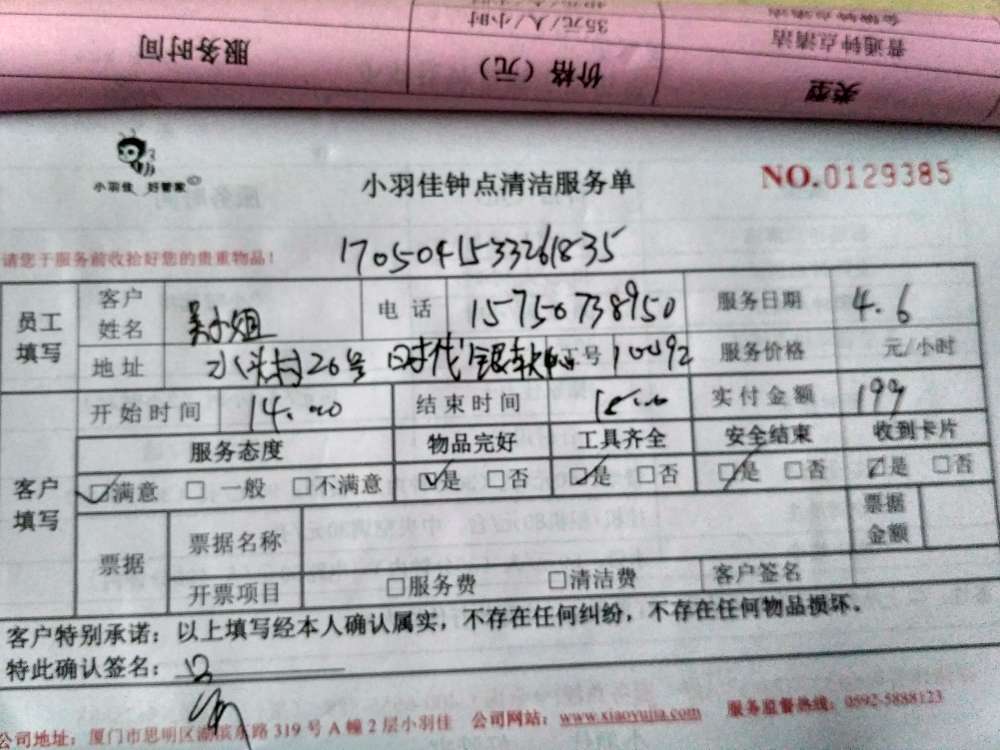 服务时间 价格（元） 类型
35元/人/小时 普通钟点清洁
小羽佳 好管家
小羽佳钟点清洁服务单
NO.0129385
请您于服务前收拾好您的贵重物品！
1705041533261835
员工填写 客户姓名 吴小姐 电话 15750738950 服务日期 4.6
地址 水头村26号 时代银软中心 工号 10092 服务价格 元/小时
客户填写 开始时间 14.00 结束时间 实付金额 199
服务态度 物品完好 工具齐全 安全结束 收到卡片
☑满意 □一般 □不满意 ☑是 □否 ☑是 □否 ☑是 □否 ☑是 □否
票据 票据名称 票据金额
开票项目 □服务费 □清洁费 客户签名
客户特别承诺：以上填写经本人确认属实，不存在任何纠纷，不存在任何物品损坏。
特此确认签名：
公司地址：厦门市思明区湖滨东路319号A幢2层小羽佳 公司网站：www.xiaoyujia.com 服务监督热线：0592-5888123